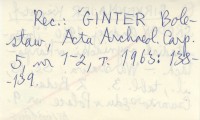 Rec.: GINTER Bole-
staw, Acta Archaeol. Carp.
5, nr 1-2, r. 1963: 138-
-139.